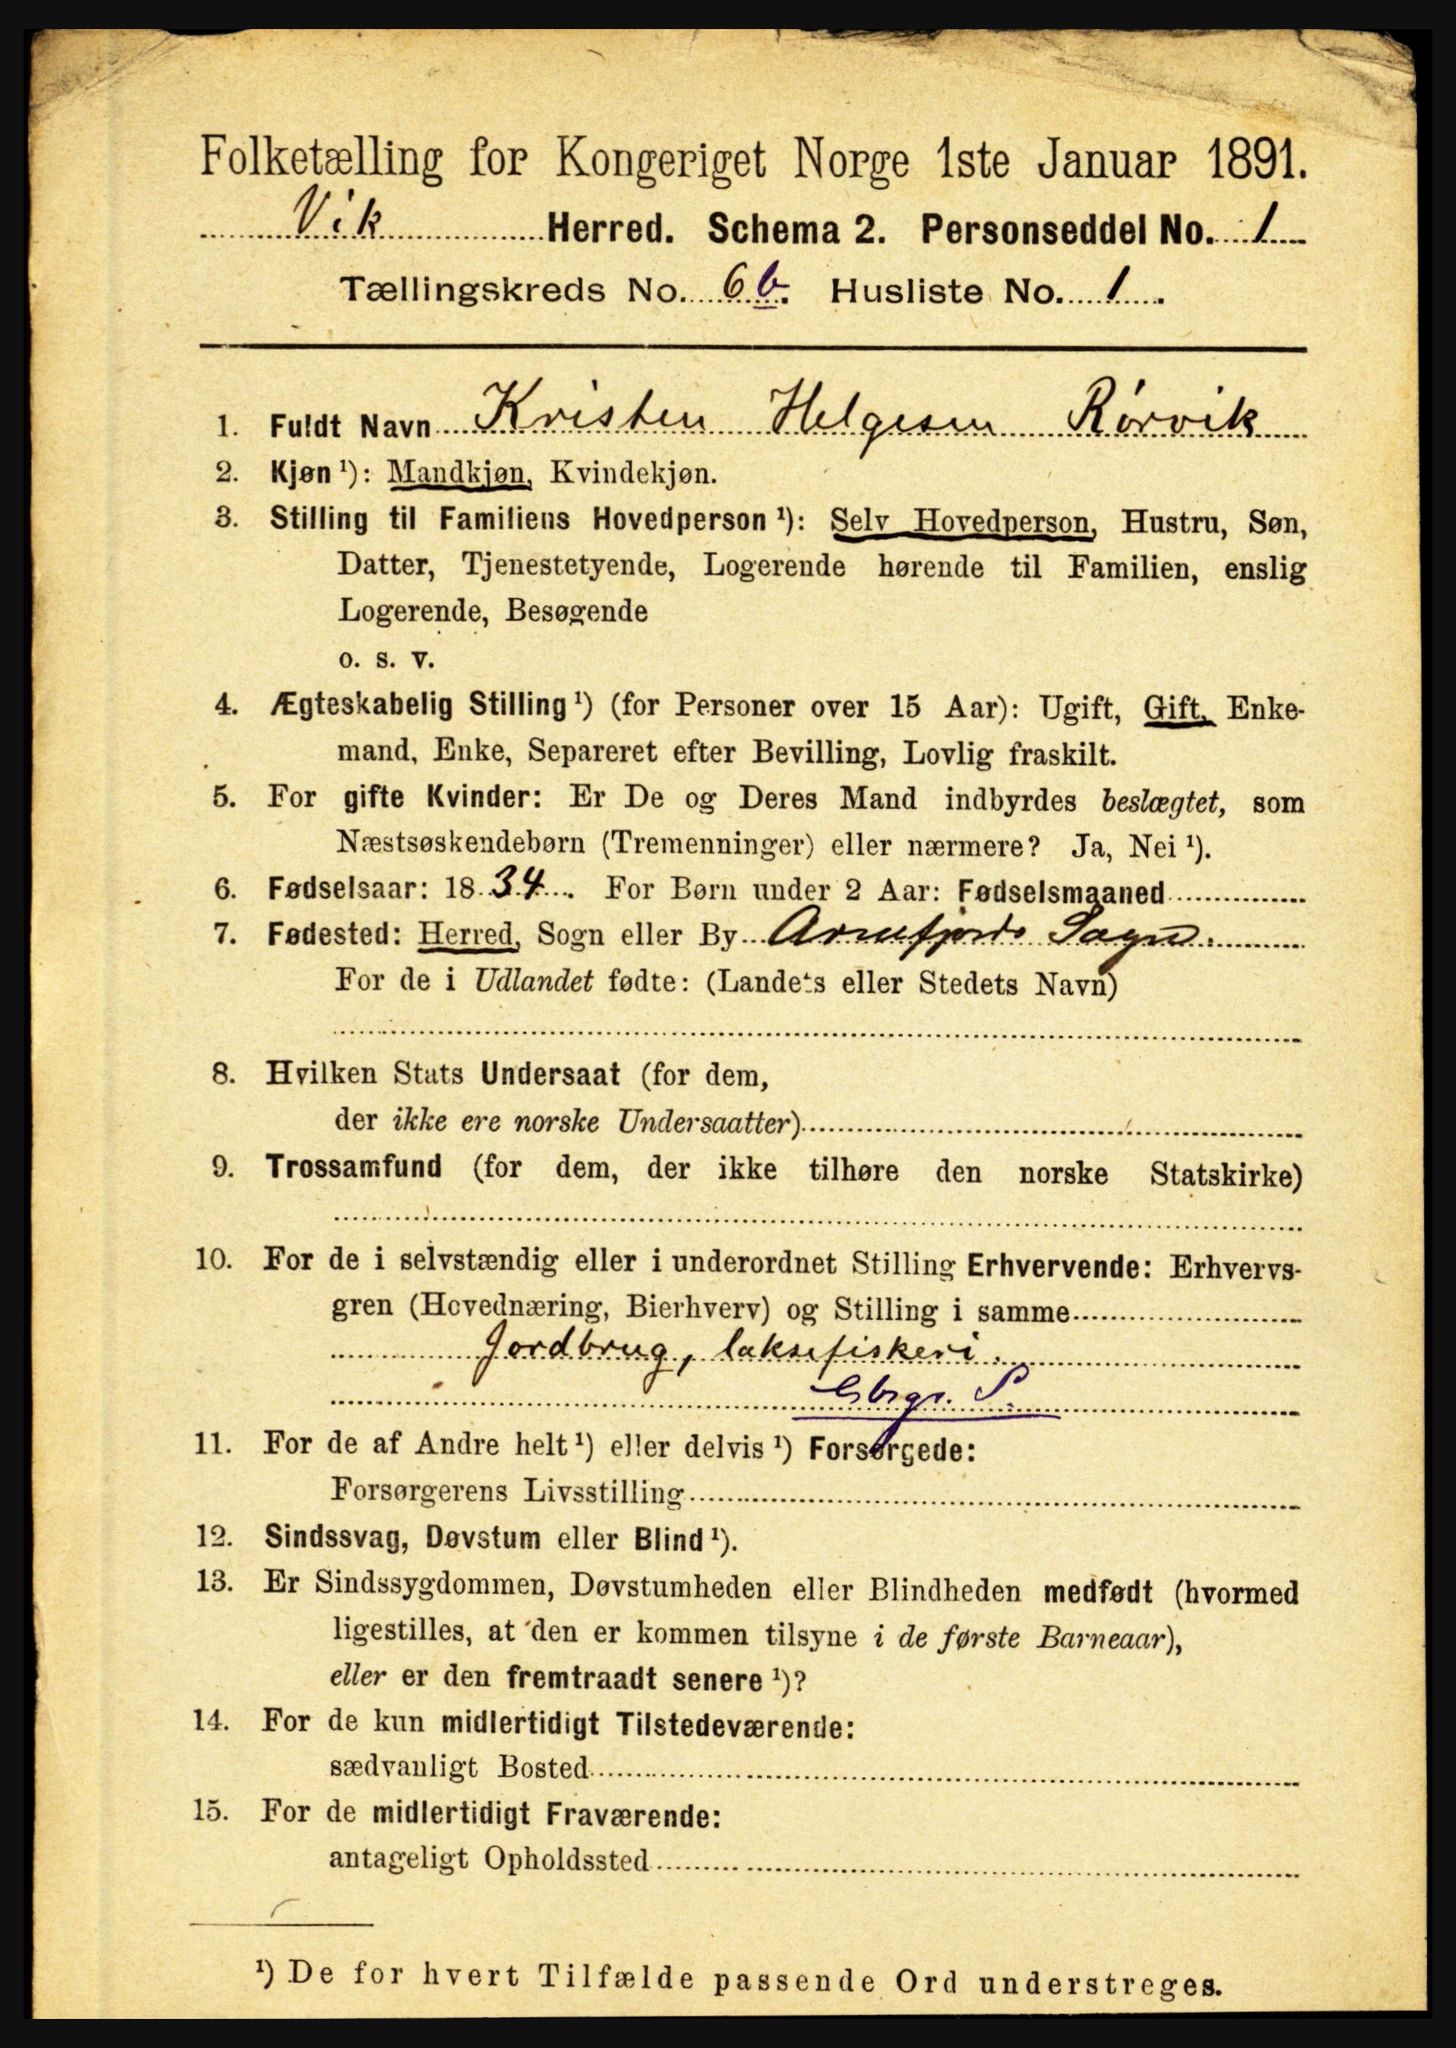 Folketælling for Kongeriget Norge 1ste Januar 1891.
Vik Herred. Schema 2. Personseddel No. 1
Tællingskreds No. 6 b. Husliste No. 1.
1. Fuldt Navn Kristen Helgesen Rørvik
2. Kjøn ¹): Mandkjøn, Kvindekjøn.
3. Stilling til Familiens Hovedperson ¹): Selv Hovedperson, Hustru, Søn,
Datter, Tjenestetyende, Logerende hørende til Familien, enslig
Logerende, Besøgende
o. s. v.
4. Ægteskabelig Stilling ¹) (for Personer over 15 Aar): Ugift, Gift, Enke-
mand, Enke, Separeret efter Bevilling, Lovlig fraskilt.
5. For gifte Kvinder: Er De og Deres Mand indbyrdes beslægtet, som
Næstsøskendebørn (Tremenninger) eller nærmere? Ja, Nei ¹).
6. Fødselsaar: 1834. For Børn under 2 Aar: Fødselsmaaned
7. Fødested: Herred, Sogn eller By Arnefjords Sogn.
For de i Udlandet fødte: (Landets eller Stedets Navn)
8. Hvilken Stats Undersaat (for dem,
der ikke ere norske Undersaatter)
9. Trossamfund (for dem, der ikke tilhøre den norske Statskirke)
10. For de i selvstændig eller i underordnet Stilling Erhvervende: Erhvervs-
gren (Hovednæring, Bierhverv) og Stilling i samme
Jordbrug, laksefiskeri.
Gbrgr. S.
11. For de af Andre helt ¹) eller delvis ¹) Forsørgede:
Forsørgerens Livsstilling
12. Sindssvag, Døvstum eller Blind ¹).
13. Er Sindssygdommen, Døvstumheden eller Blindheden medfødt (hvormed
ligestilles, at den er kommen tilsyne i de første Barneaar),
eller er den fremtraadt senere ¹)?
14. For de kun midlertidigt Tilstedeværende:
sædvanligt Bosted
15. For de midlertidigt Fraværende:
antageligt Opholdssted
¹) De for hvert Tilfælde passende Ord understreges.